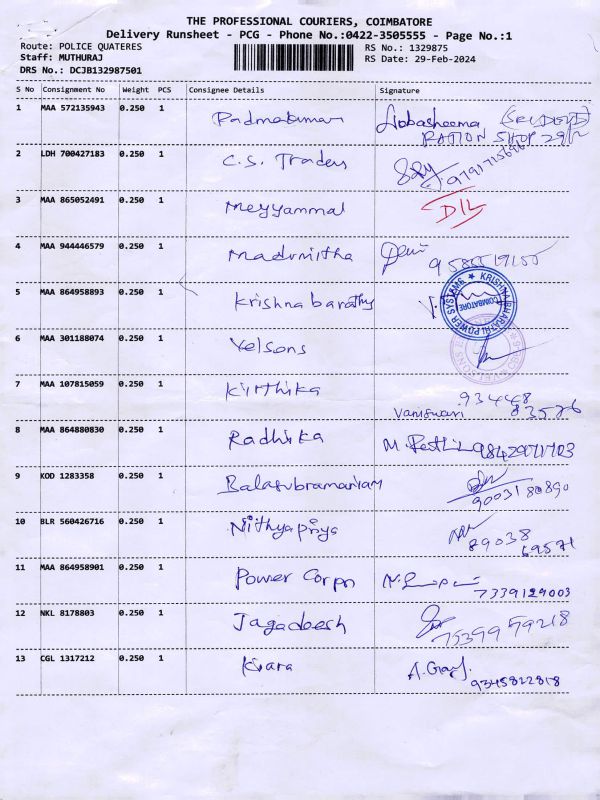 THE PROFESSIONAL COURIERS, COIMBATORE
Delivery Runsheet - PCG - Phone No.:0422-3505555 - Page No.:1
Route: POLICE QUATERES RS No.: 1329875
Staff: MUTHURAJ RS Date: 29-Feb-2024
DRS No.: DCJB132987501
S No Consignment No Weight PCS Consignee Details Signature
1 MAA 572135943 0.250 1 Padmakumar
RATION SHOP
2 LDH 700427183 0.250 1 C.S. Traders
3 MAA 865052491 0.250 1 Meyyammal
4 MAA 944446579 0.250 1 Madumitha
5 MAA 864958893 0.250 1 Krishna barathy
KRISHNABHARATHI POWER SYSTEMS
COIMBATORE
6 MAA 301188074 0.250 1 Velsons
7 MAA 107815059 0.250 1 Kirthika
93448
83576
8 MAA 864880830 0.250 1 Radhika M.
9 KOD 1283358 0.250 1 Balasubramaniam
9003180890
10 BLR 560426716 0.250 1 Nithyapriya
89038
69571
11 MAA 864958901 0.250 1 Power Corpn
7339129003
12 NKL 8178803 0.250 1 Jagadeesh
13 CGL 1317212 0.250 1 Kiara
9345822818